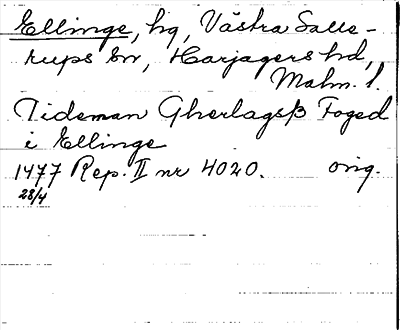 Ellinge, hg, Västra Salle-
rups sn, Harjagers hd,
Malm. l.
Tideman Gherlagsß Foged
i Ellinge
1477 Rep. II nr 4020. orig.
28/4